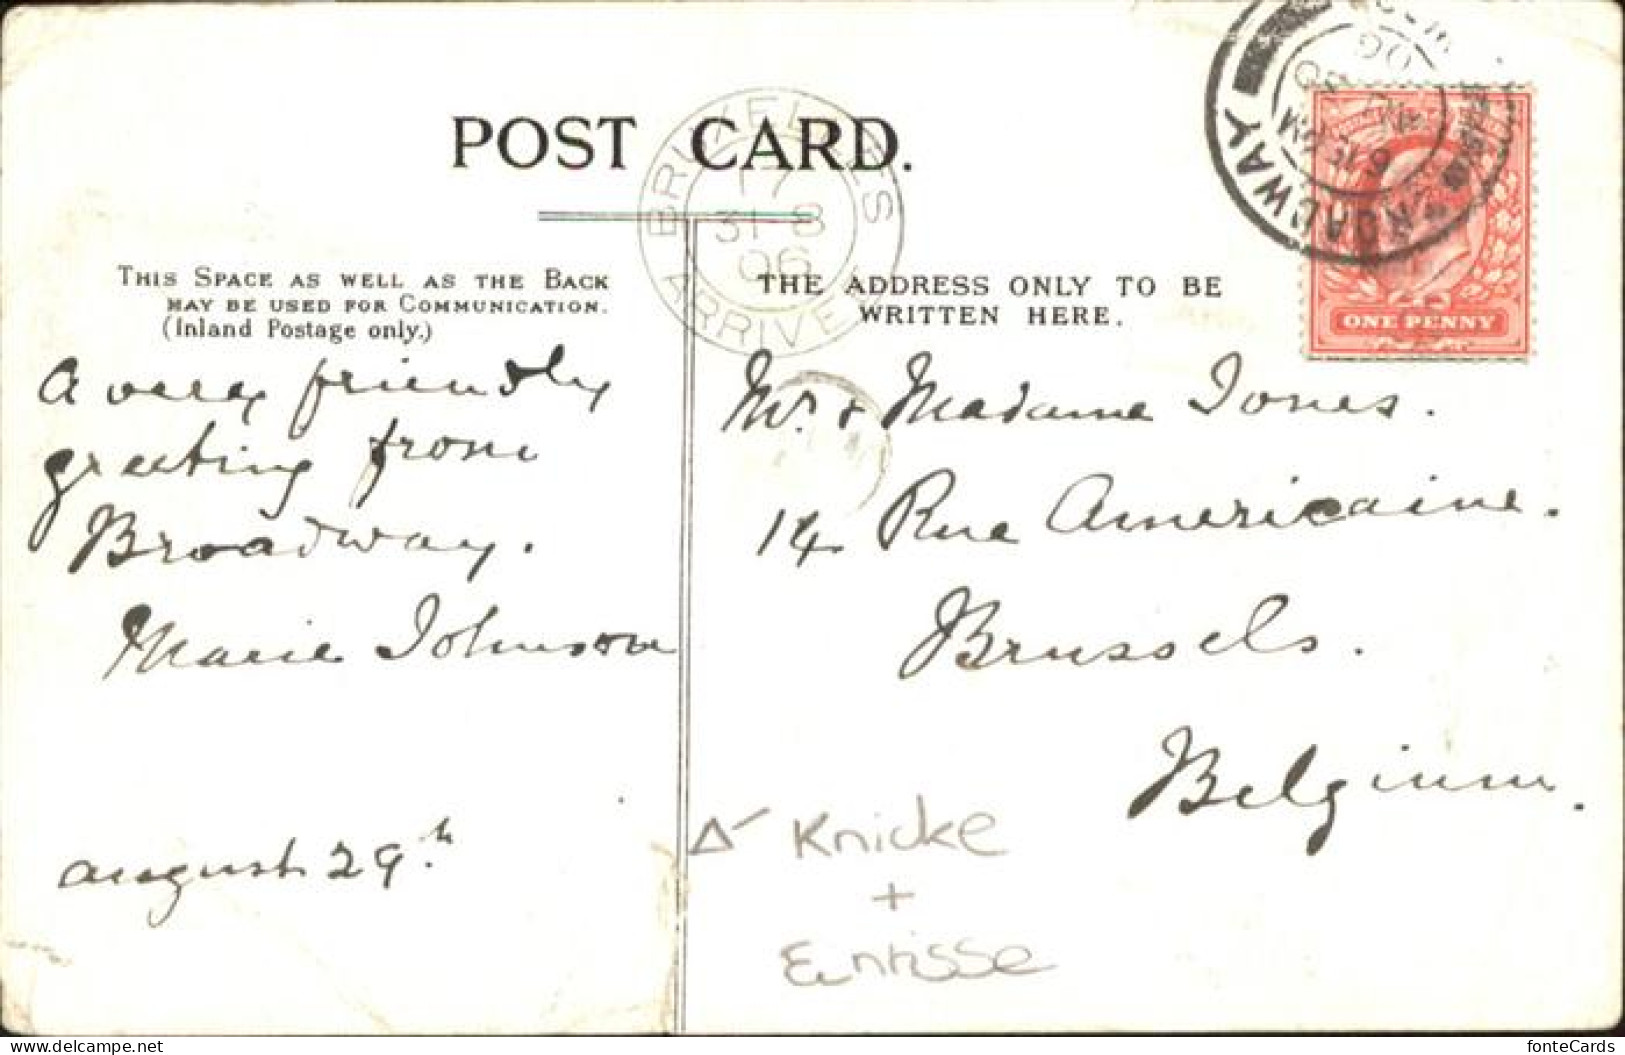 POST CARD.
BRUXELLES
17
31-8
06
ARRIVE
BROADWAY
6.15 PM
AU 30
06
ONE PENNY
THIS SPACE AS WELL AS THE BACK
MAY BE USED FOR COMMUNICATION.
(Inland Postage only.)
THE ADDRESS ONLY TO BE
WRITTEN HERE.
A very friendly
greeting from
Broadway.
Marie Johnson
august 29.th
Mr. + Madame Jones.
14 Rue Americaine.
Brussels.
Belgium.
Knicke
+
Einrisse
delcampe.net
fonteCards